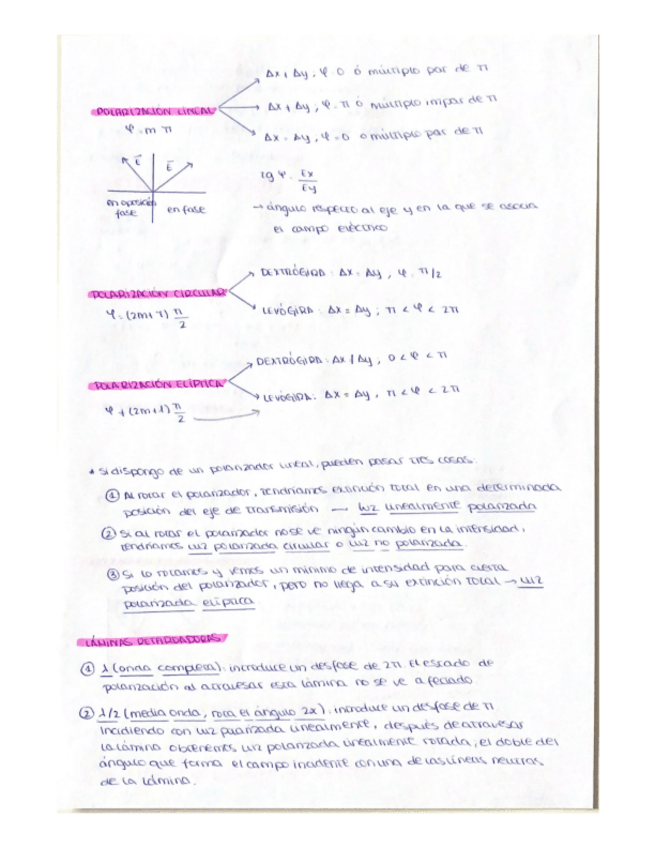 Δx ≠ Δy, φ = 0 ó múltiplo par de π
POLARIZACIÓN LINEAL
Δx ≠ Δy, φ = π ó múltiplo impar de π
φ = m π
Δx = Δy, φ = 0 ó múltiplo par de π
E E
tg φ = Ex/Ey
en oposición fase
en fase
→ ángulo respecto al eje y en la que se asocia
el campo eléctrico
DEXTRÓGIRA: Δx = Δy, φ = π/2
POLARIZACIÓN CIRCULAR
φ = (2m+1) π/2
LEVÓGIRA: Δx = Δy; π < φ < 2π
DEXTRÓGIRA: Δx ≠ Δy, 0 < φ < π
POLARIZACIÓN ELÍPTICA
LEVÓGIRA: Δx = Δy, π < φ < 2π
φ ≠ (2m+1) π/2
* Si dispongo de un polarizador lineal, pueden pasar tres cosas:
① Al rotar el polarizador, tendríamos extinción total en una determinada
posición del eje de transmisión — luz linealmente polarizada
② Si al rotar el polarizador no se ve ningún cambio en la intensidad,
tendríamos luz polarizada circular o luz no polarizada.
③ Si lo rotamos y vemos un mínimo de intensidad para cierta
posición del polarizador, pero no llega a su extinción total → luz
polarizada elíptica
LÁMINAS RETARDADORAS
① λ (onda completa): introduce un desfase de 2π. El estado de
polarización al atravesar esta lámina no se ve afectado
② λ/2 (media onda, rota el ángulo 2x): introduce un desfase de π
Incidiendo con luz polarizada linealmente, después de atravesar
la lámina obtenemos luz polarizada linealmente rotada, el doble del
ángulo que forma el campo incidente con una de las líneas neutras
de la lámina.